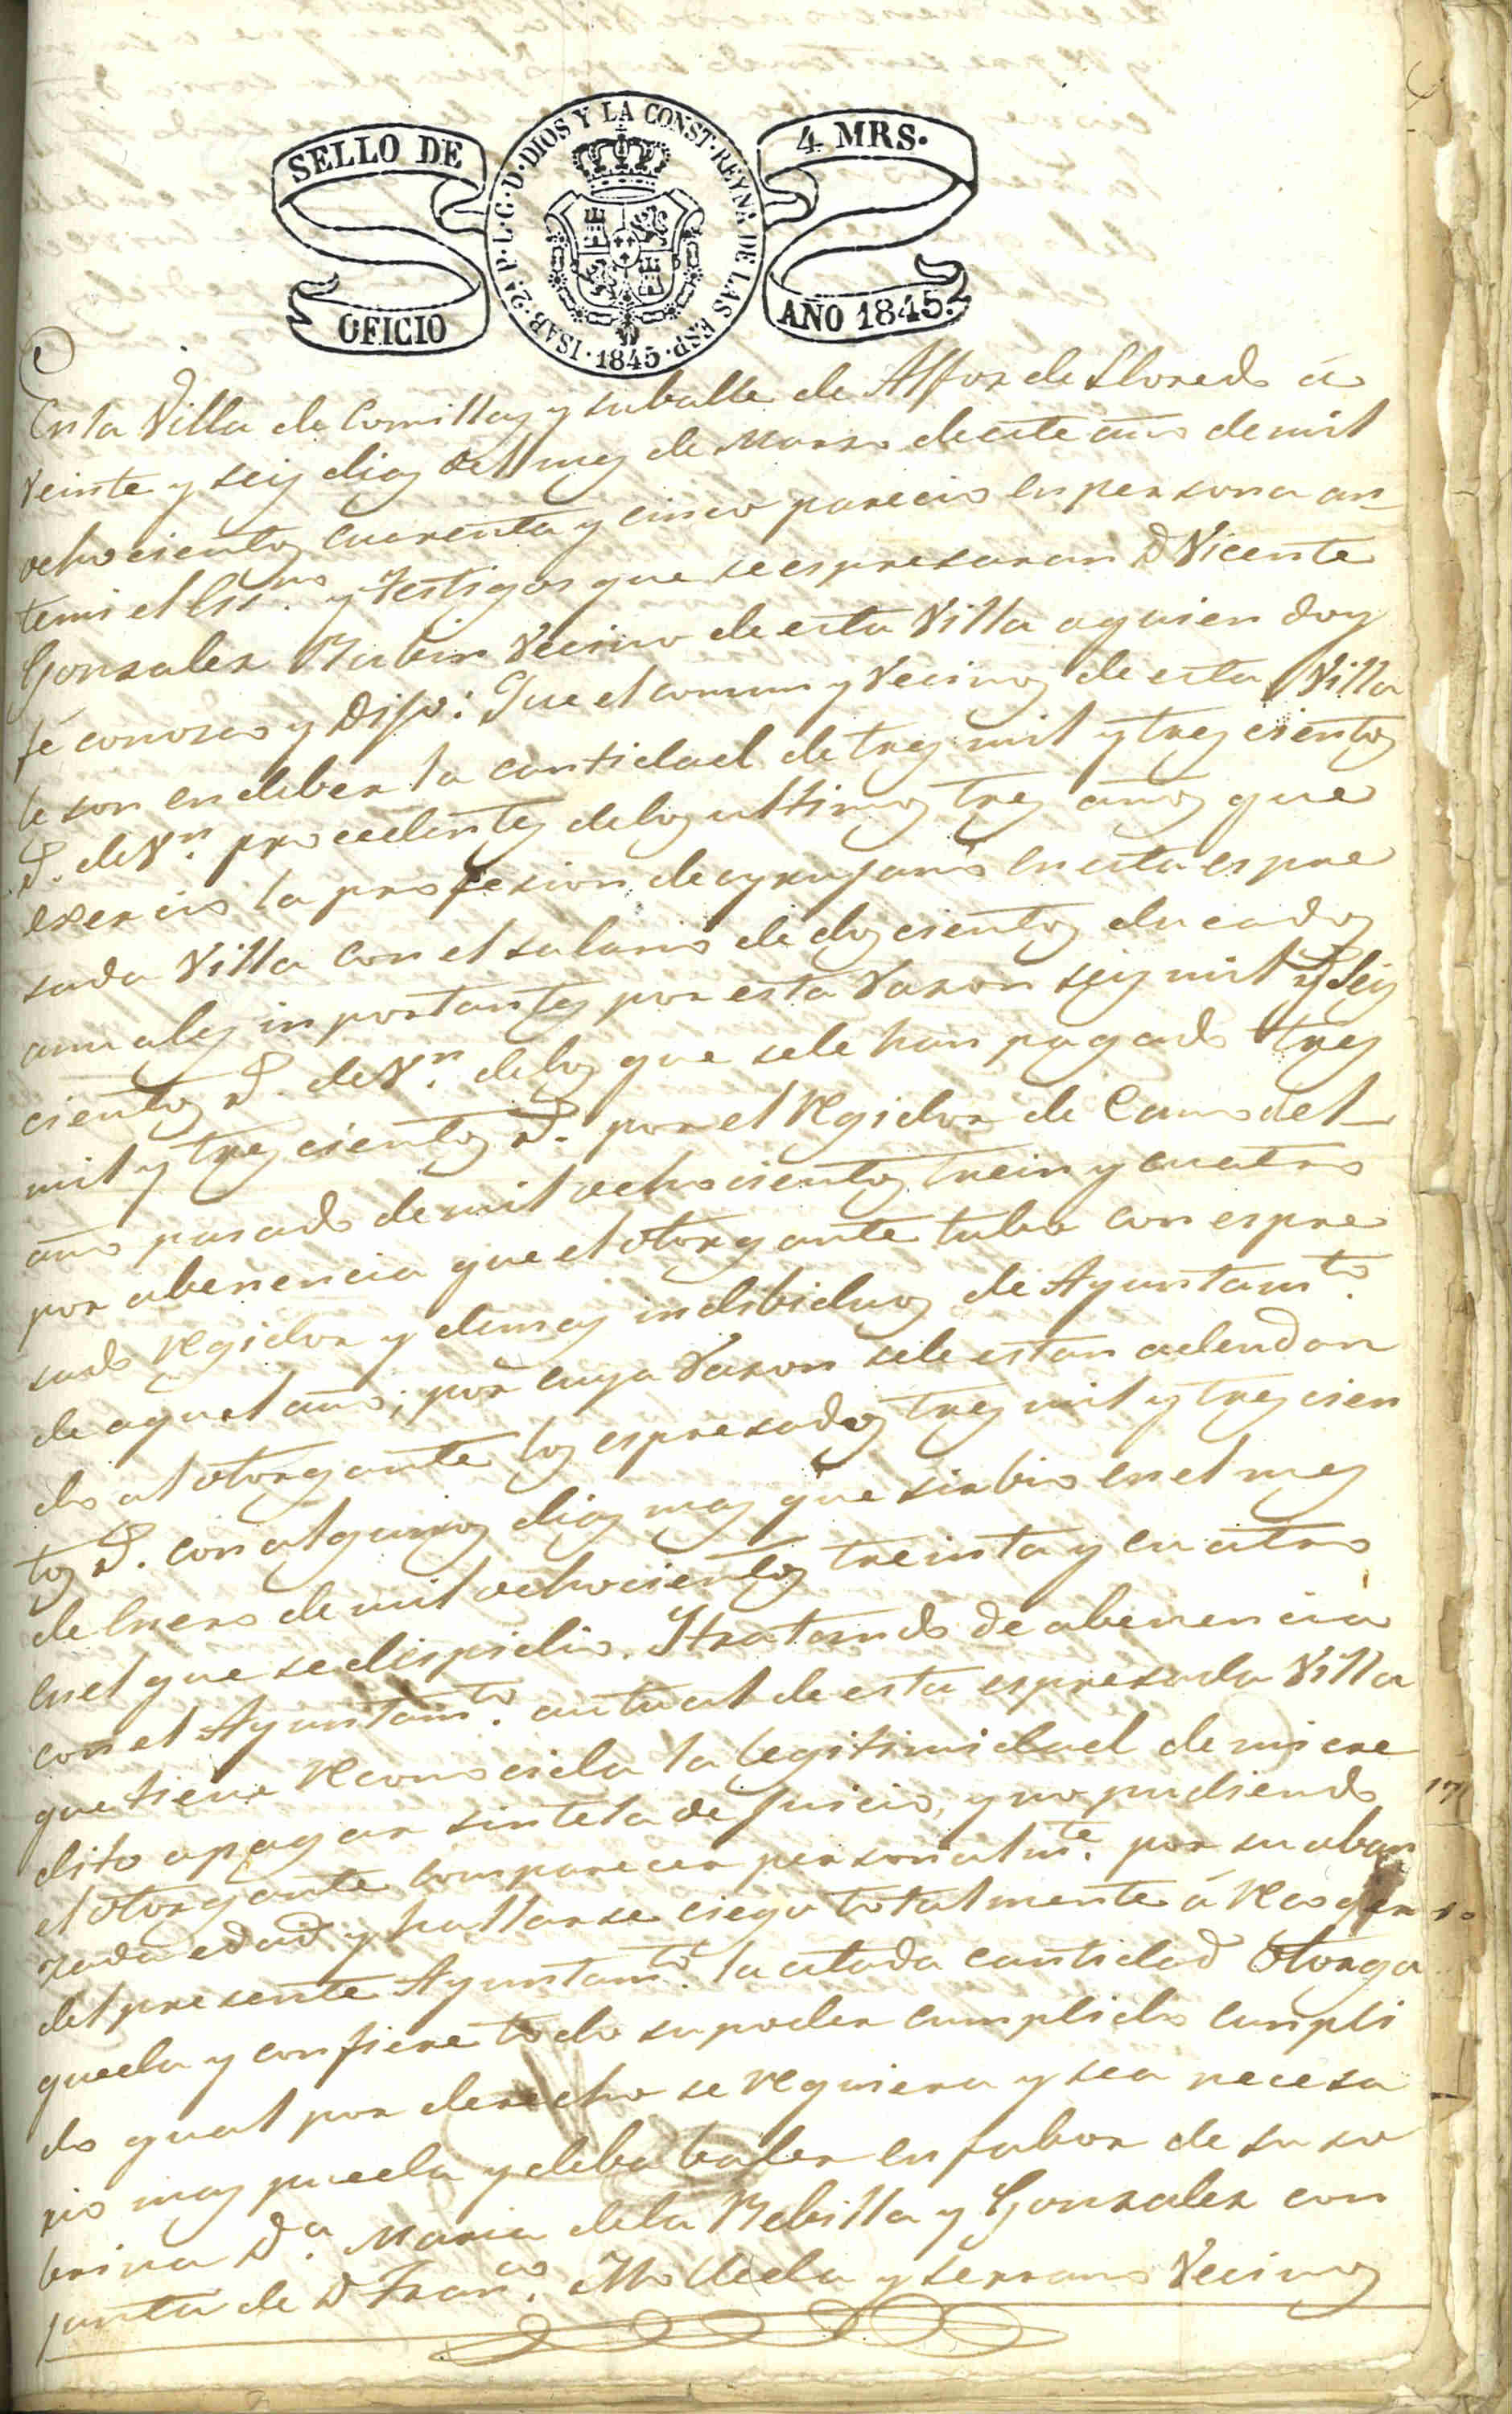 SELLO DE OFICIO
ISAB. 2ª P. L. G. D. DIOS Y LA CONST. REYNA DE LAS ESP. 1845.
4 MRS.
AÑO 1845.
En la Villa de Comillas y su balle de Alfoz de Lloredo á
Veinte y seis dias del mes de Marzo de este año de mil
ochocientos cuarenta y cinco parecio en persona an
temi el Es.no y testigos que se espresaran D Vicente
Gonzalez Rubin Vecino de esta Villa a quien doy
fé conozco y Dijo: Que el comun y Vecinos de esta Villa
le son en deber la cantidad de tres mil y tres cientos
r.s de V.n procedentes de los ultimos tres años que
exercio la profesion de cyrujano en esta espre
sada Villa con el salario de dos cientos ducados
annales inportantes por esta Razon seis mil y seis
cientos r.s de V.n de los que se le han pagado tres
mil y tres cientos r.s por el Regidor de Cano del
año pasado de mil ochocientos trein y cuatro
por abenencia que el otorgante tubo con espre
sado Regidor y demas indibiduos de Ayuntam.to
de aquel año; por cuya Razon se le estan adeudan
do al otorgante los espresados tres mil y tres cien
tos r.s con algunos dias mas que sirbio en el mes
de Enero de mil ochocientos treinta y cuatro
en el que se despidio. Y tratando de abenencia
con el Ayuntam.to autual de esta espresada Villa
que tiene Reconocida la legitimidad de mi cre
dito a pagar sin tela de juicio, y no pudiendo
el otorgante comparecer personalm.te por su aban
zada edad y hallarse ciego totalmente á Recoger
del presente Ayuntam.to la citada cantidad Otorga
que da y confiere todo su poder cumplido cumpli
do qual por derecho se Requiera y sea necesa
rio mas pueda y deba baler en fabor de su so
brina D.a Maria de la Rebilla y Gonzalez con
junta de D Fran.co Molleda y Serrano Vecinos